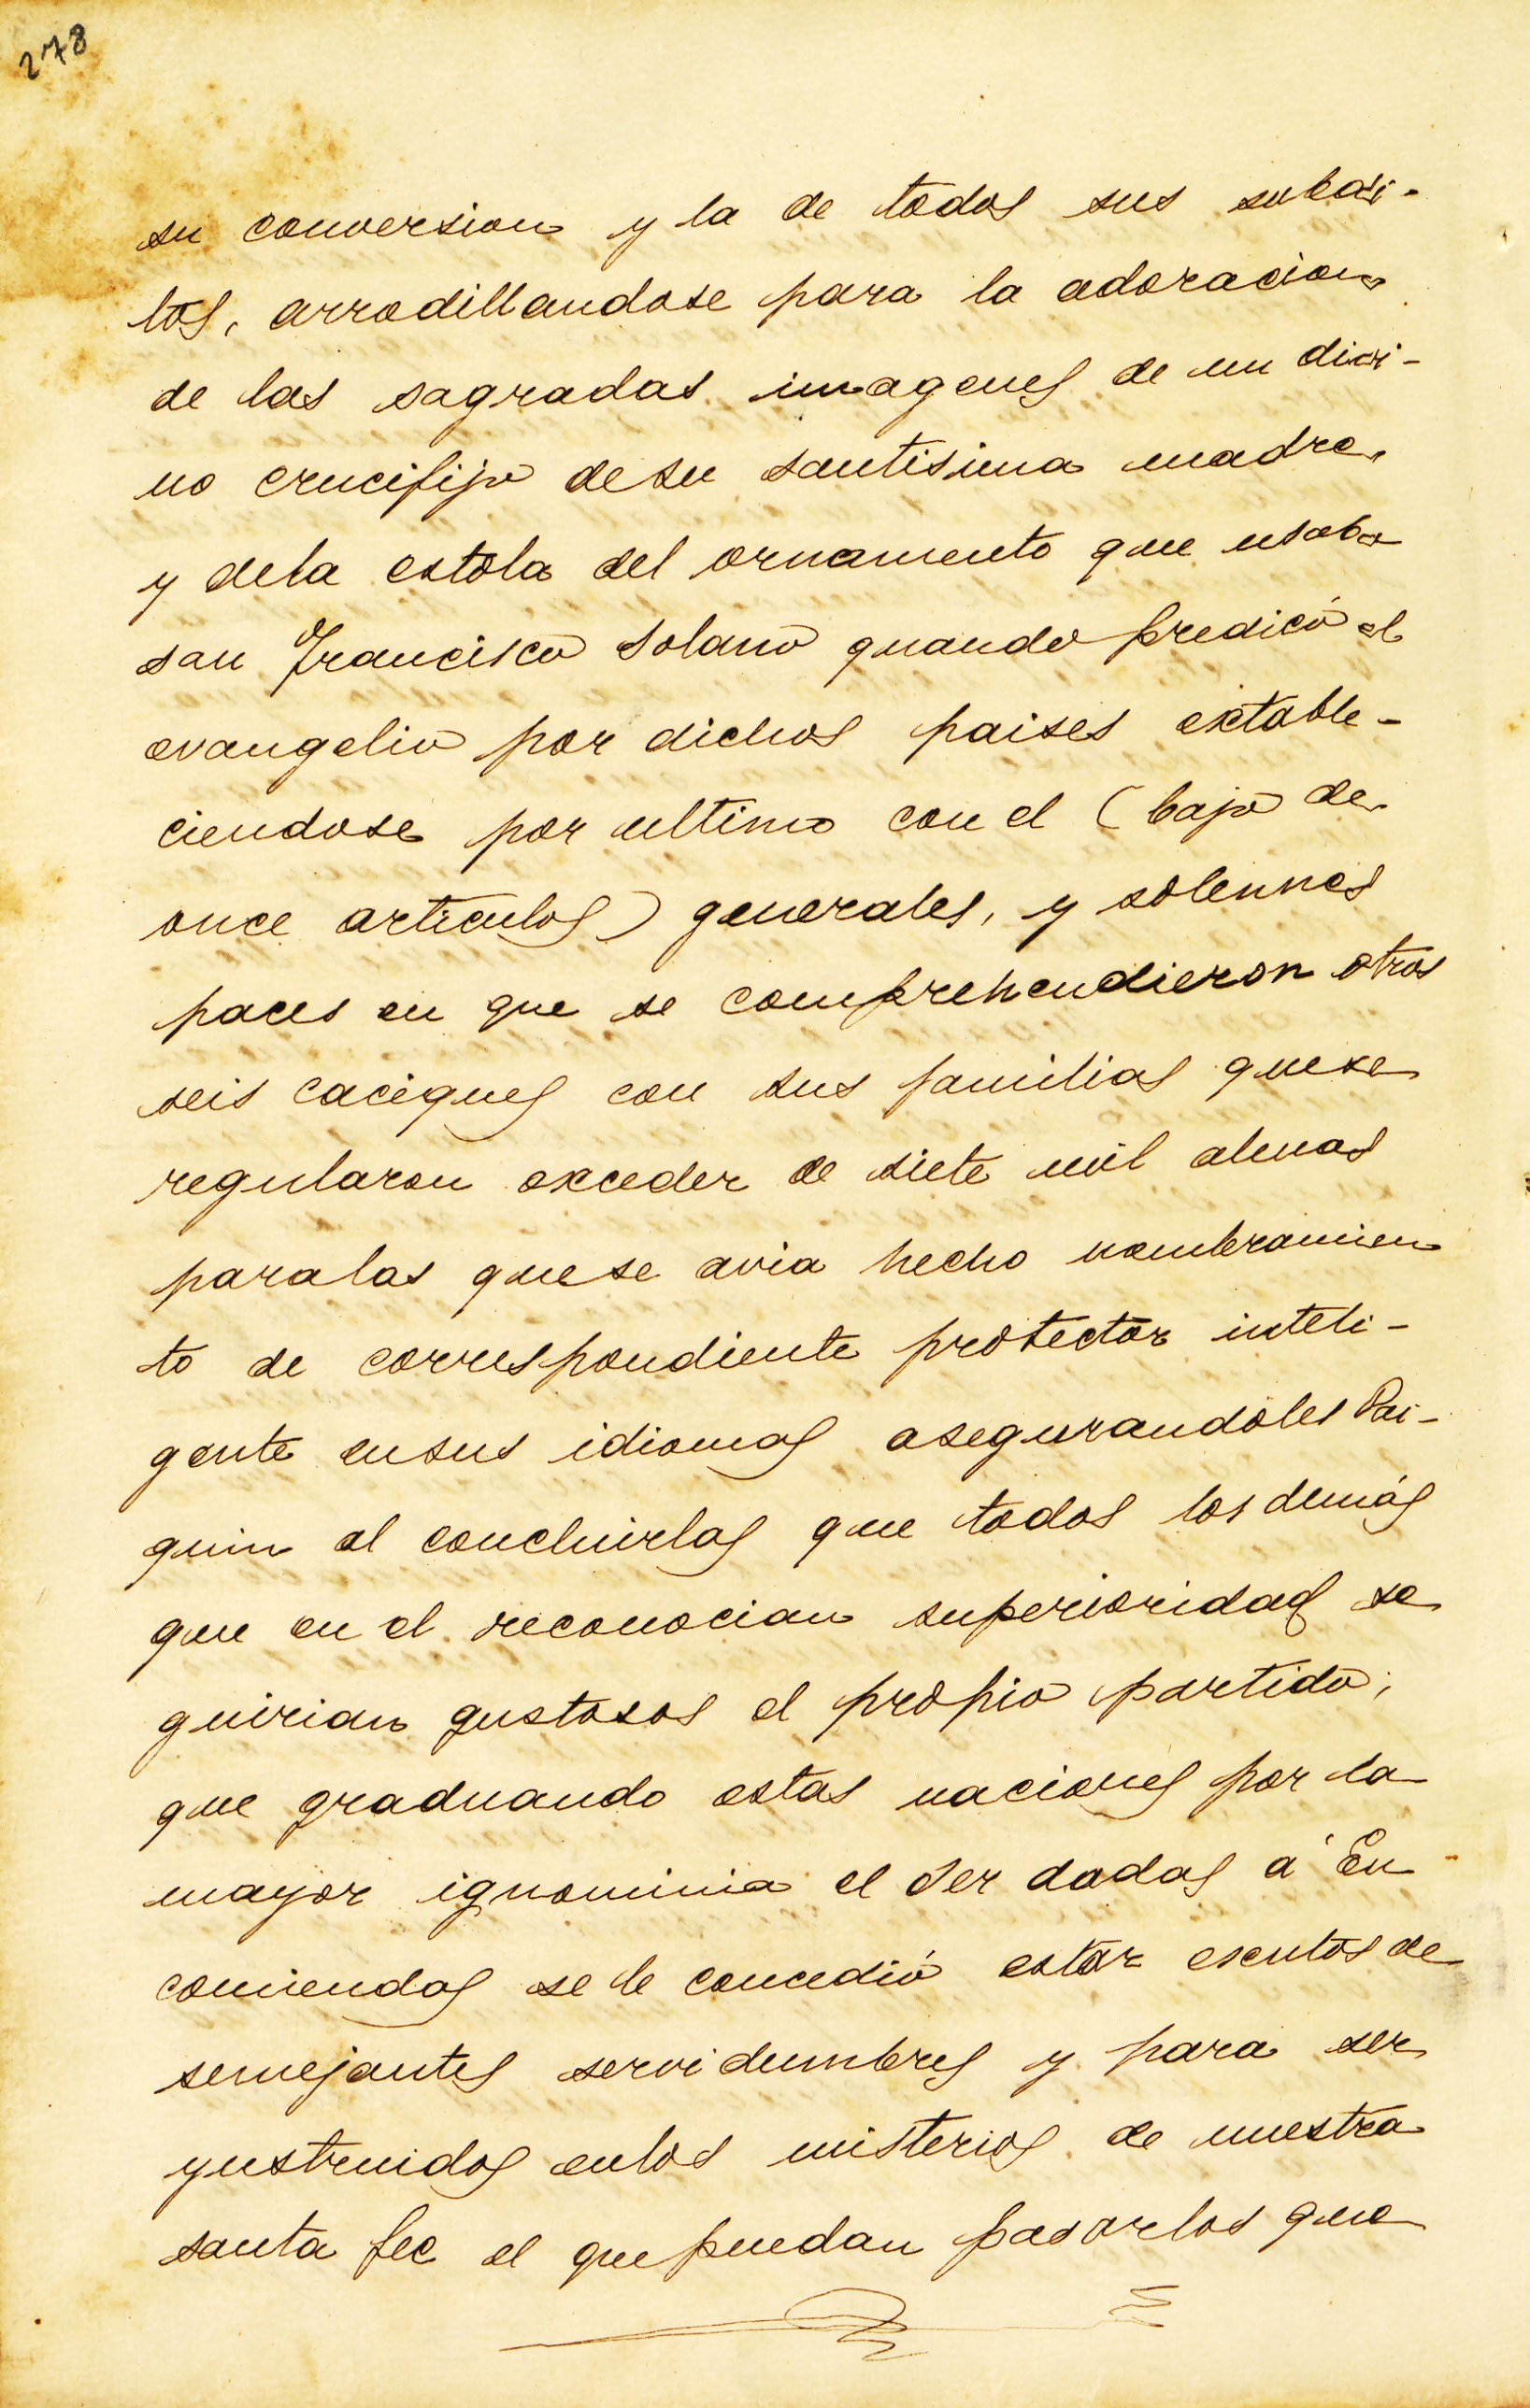 278
su conversion y la de todos sus subdi-
tos, arrodillandose para la adoracion
de las sagradas imagenes de un divi-
no crucifijo de su santisima madre,
y dela estola del ornamento que usaba
san Francisco Solano quando predicó el
evangelio por dichos paises estable-
ciendose por ultimo con el (bajo de
once articulos) generales, y solennes
paces en que se comprehendieron otros
seis caciques con sus familias quese
regularon exceder de siete mil almas
paralas quese avia hecho nombramien
to de correspondiente protector inteli-
gente ensus idiomas asegurandoles Pai-
quin al concluirlas que todos los demás
que en el reconocian superioridad se
guirian gustosos el propio partido,
que graduando estas naciones por la
mayor ignominia el ser dadas á En
comiendas se le concedió estar esentos de
semejantes servidumbres y para ser
ynstruidos enlos misterios de nuestra
santa fee el quepuedan pasarlos que